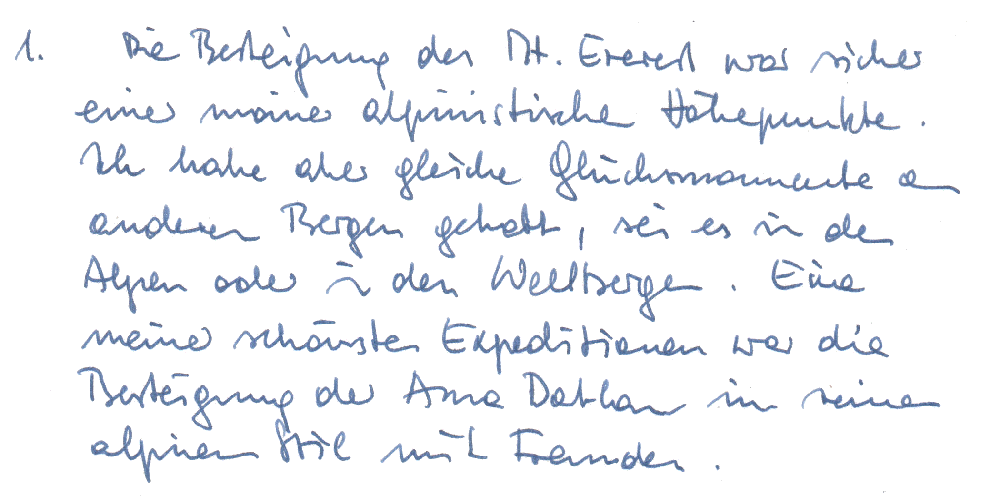 1. Die Besteigung des Mt. Everest war sicher
einer meiner alpinistischen Höhepunkte.
Ich habe aber gleiche Glücksmomente an
anderen Bergen gehabt, sei es in den
Alpen oder in den Weltbergen. Eine
meiner schönsten Expeditionen war die
Besteigung der Ama Dablam im reinen
alpinen Stil mit Freunden.